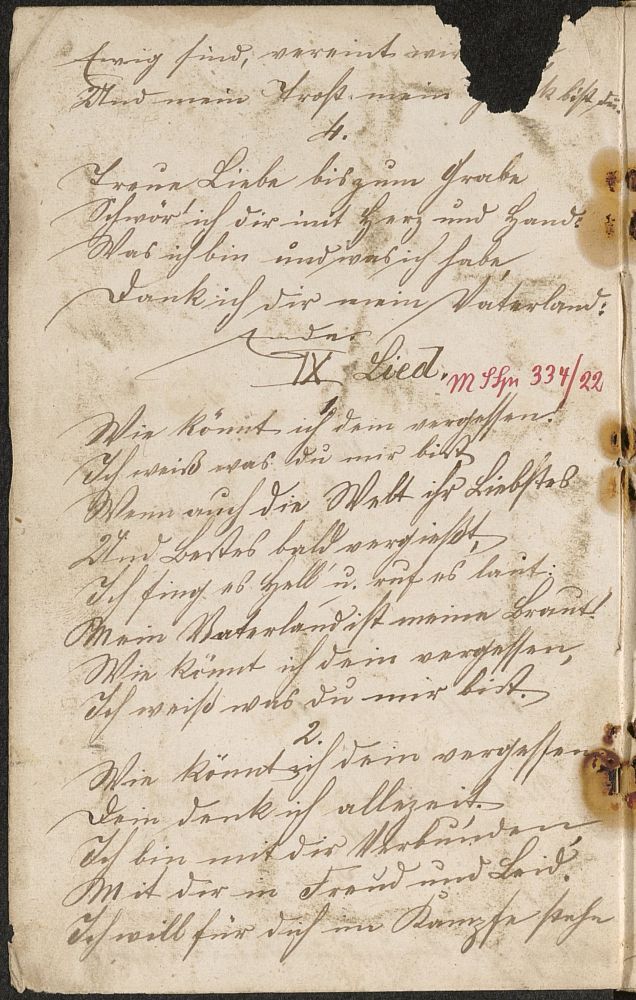 Ewig sind, vereint wir
Und mein Trost mein k bist du.
4.
Treue Liebe bis zum Grabe
Schwör' ich dir mit Herz und Hand:
Was ich bin und was ich habe
Dank ich dir mein Vaterland:
Ende.
IX Lied.
M SHn 334/22
1.
Wie könnt ich dein vergessen!
Ich weiß was du mir bist
Wenn auch die Welt ihr Liebstes
Und Bestes bald vergießt,
Ich sing es hell u. ruf es laut:
Mein Vaterland ist meine Braut!
Wie könnt ich dein vergessen,
Ich weiß was du mir bist.
2.
Wie könnt ich dein vergessen
Dein denk ich allezeit.
Ich bin mit dir Verbunden,
Mit dir in Freud und Leid.
Ich will für dich im Kampfe stehn